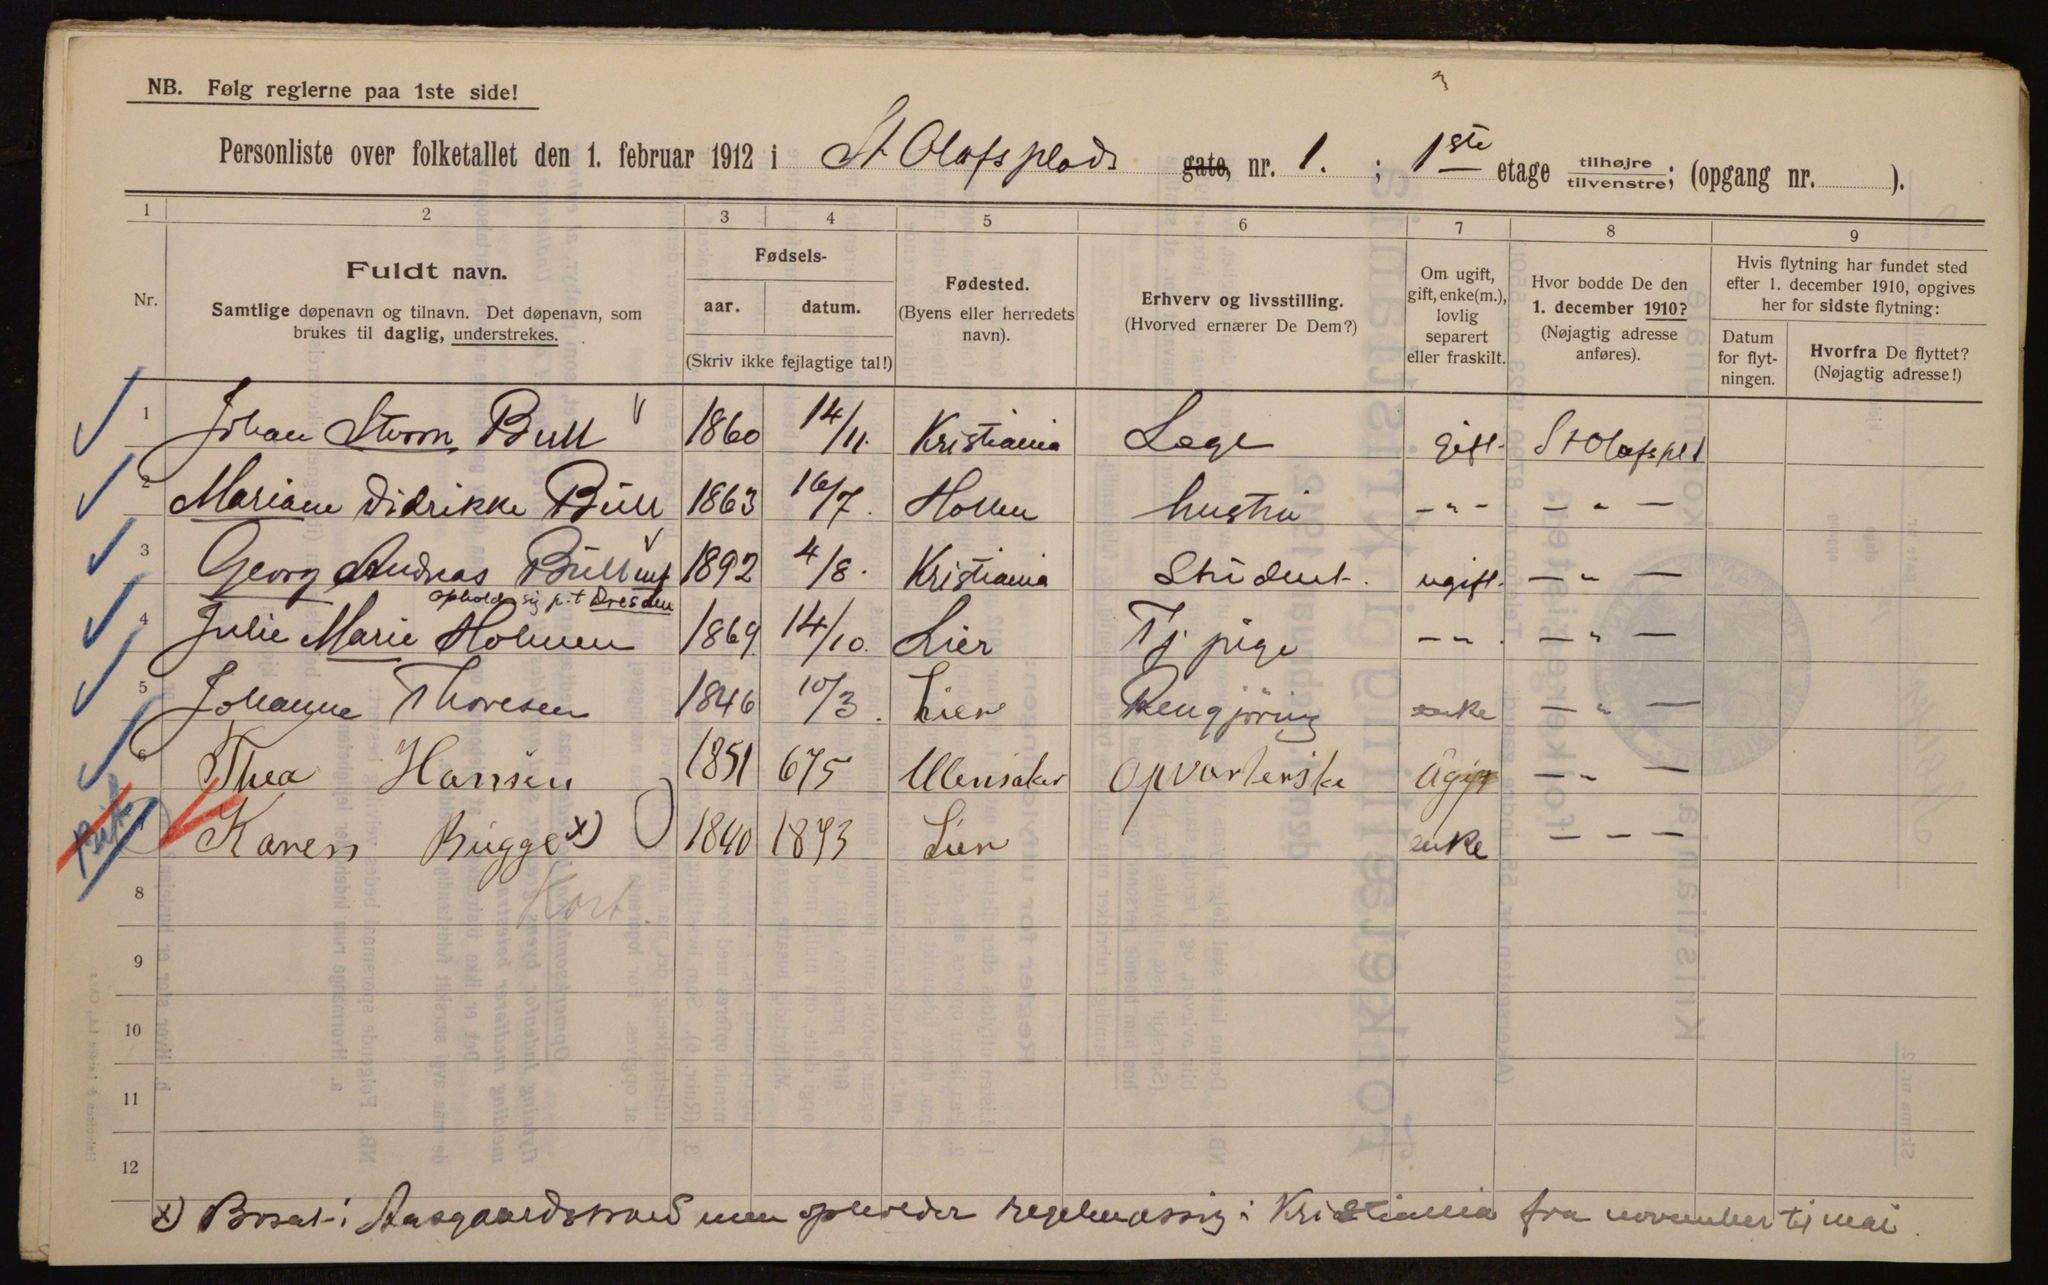 NB. Følg reglerne paa 1ste side!
Personliste over folketallet den 1. februar 1912 i St Olafsplads gate, nr. 1. ; 1ste etage tilhøjre / tilvenstre; (opgang nr. ).
1 2 3 4 5 6 7 8 9
Nr.
Fuldt navn.
Samtlige døpenavn og tilnavn. Det døpenavn, som
brukes til daglig, understrekes.
Fødsels-
aar. datum.
(Skriv ikke fejlagtige tal!)
Fødested.
(Byens eller herredets
navn).
Erhverv og livsstilling.
(Hvorved ernærer De Dem?)
Om ugift,
gift, enke(m.),
lovlig
separert
eller fraskilt.
Hvor bodde De den
1. december 1910?
(Nøjagtig adresse
anføres).
Hvis flytning har fundet sted
efter 1. december 1910, opgives
her for sidste flytning:
Datum
for flyt-
ningen.
Hvorfra De flyttet?
(Nøjagtig adresse!)
1 Johan Storm Bull 1860 14/11. Kristiania Læge gift. St Olafspl 1
2 Mariane Didrikke Bull 1863 16/7. Hollen hustru – " – – " –
3 Georg Andreas Bull 1892 4/8. Kristiania Student. ugift. – " –
opholder sig p.t Dresden
4 Julie Marie Holmen 1869 14/10. Lier Tj pige – " – – " –
5 Johanne Thoresen 1846 10/3. Lier Rengjöring enke – " –
6 Thea Hansen 1851 6/5 Ullensaker Opvarterske Ugift – " –
7 Karen Bugge x) 1840 1873 Lier enke – – –
Kort
8
9
10
11
12
x) Bosat i Aasgaardstrand men opholder regelmæssig i Kristiania fra november til mai.